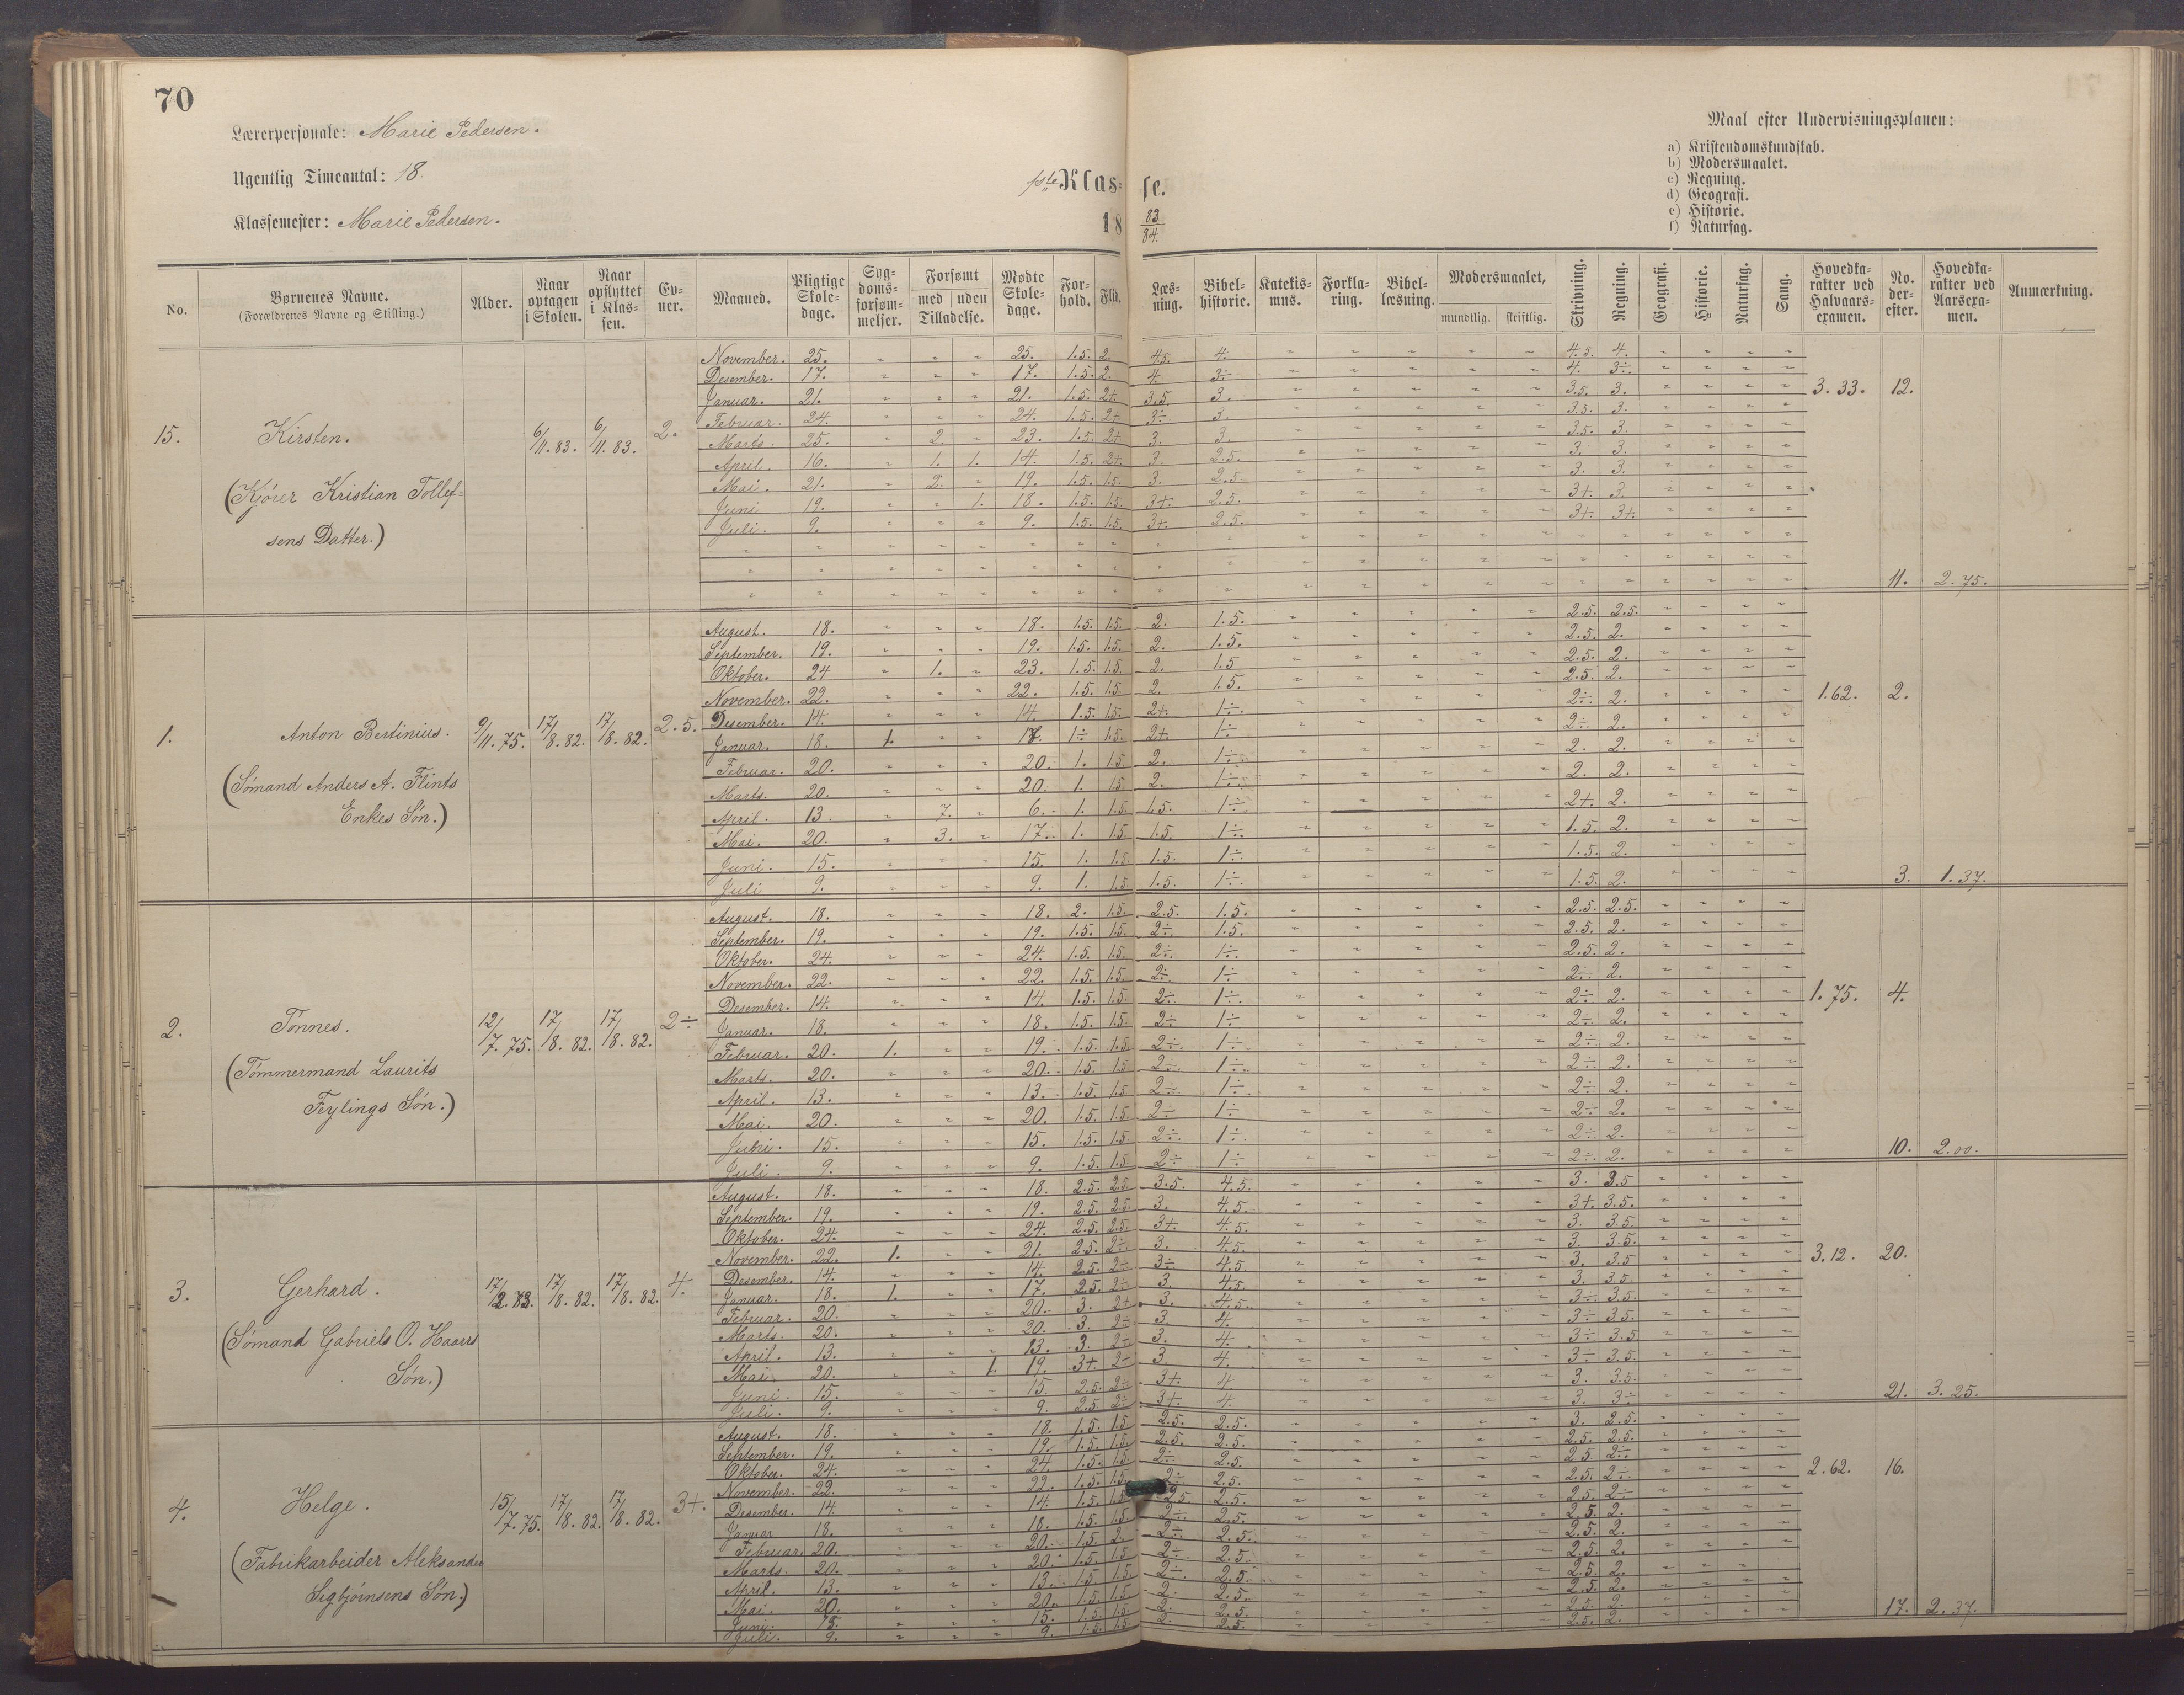 70
Lærerpersonale: Marie Pedersen.
Ugentlig Timeantal: 18.
Klassemester: Marie Pedersen.
1ste Klasse.
18 83/84.
Maal efter Undervisningsplanen:
a) Kristendomskundskab.
b) Modersmaalet.
c) Regning.
d) Geografi.
e) Historie.
f) Naturfag.
No. | Børnenes Navne. (Forældrenes Navne og Stilling.) | Alder. | Naar optagen i Skolen. | Naar opflyttet i Klassen. | Evner. | Maaned. | Pligtige Skoledage. | Sygdomsforsømmelser. | Forsømt med uden Tilladelse. | Mødte Skoledage. | Forhold. | Flid. | Læsning. | Bibelhistorie. | Katekismus. | Forklaring. | Bibellæsning. | Modersmaalet, mundtlig. skriftlig. | Skrivning. | Regning. | Geografi. | Historie. | Naturfag. | Sang. | Hovedkarakter ved Halvaarsexamen. | No. derefter. | Hovedkarakter ved Aarsexamen. | Anmærkning.
15. Kirsten. (Kjører Kristian Tollefsens Datter.) 6/11. 83. 6/11. 83. 2.
November. 25. " " " 25. 1.5. 2. 4.5. 4. " " " " " 4.5. 4. " " " "
Desember. 17. " " " 17. 1.5. 2. 4. 3÷ " " " " " 4. 3÷. " " " "
Januar. 21. " " " 21. 1.5. 2+. 3.5. 3. " " " " " 3.5. 3. " " " " 3.33. 12.
Februar. 24. " " " 24. 1.5. 2+. 3÷ 3. " " " " " 3.5. 3. " " " "
Marts. 25. " 2. " 23. 1.5. 2+. 3. 3. " " " " " 3.5. 3. " " " "
April. 16. " 1. 1. 14. 1.5. 2+. 3. 2.5. " " " " " 3. 3. " " " "
Mai. 21. " 2. " 19. 1.5. 1.5. 3. 2.5. " " " " " 3. 3. " " " "
Juni 19. " " 1. 18. 1.5. 1.5. 3+. 2.5. " " " " " 3+. 3. " " " "
Juli. 9. " " " 9. 1.5. 1.5. 3+. 2.5. " " " " " 3+. 3+. " " " "
11. 2.75.
1. Anton Bertinius. (Sømand Anders A. Flints Enkes Søn.) 9/11. 75. 17/8. 82. 17/8. 82. 2.5.
August. 18. " " " 18. 1.5. 1.5. 2. 1.5. " " " " " 2.5. 2.5. " " " "
September. 19. " " " 19. 1.5. 1.5. 2. 1.5. " " " " " 2.5. 2. " " " "
Oktober. 24 " 1. " 23. 1.5. 1.5. 2. 1.5 " " " " " 2.5. 2. " " " "
November. 22. " " " 22. 1.5. 1.5. 2. 1.5. " " " " " 2.5. 2. " " " "
Desember. 14. " " " 14. 1.5. 1.5. 2+. 1÷. " " " " " 2÷. 2. " " " " 1.62. 2.
Januar. 18. 1. " " 17. 1÷ 1.5. 2+. 1÷ " " " " " 2÷. 2. " " " "
Februar. 20. " " " 20. 1. 1.5 2. 1÷. " " " " " 2. 2. " " " "
Marts. 20. " " " 20. 1. 1.5. 2. 1÷. " " " " " 2. 2. " " " "
April. 13. " 7. " 6. 1. 1.5. 1.5. 1÷ " " " " " 2+. 2. " " " "
Mai. 20. " 3. " 17. 1. 1.5. 1.5. 1÷. " " " " " 1.5. 2. " " " "
Juni. 15. " " " 15. 1. 1.5. 1.5. 1÷. " " " " " 1.5. 2. " " " "
Juli 9. " " " 9. 1. 1.5. 1.5. 1÷. " " " " " 1.5. 2. " " " " 3. 1.37.
2. Tønnes. (Tømmermand Laurits Feylings Søn.) 12/7. 75. 17/8. 82. 17/8. 82. 2÷
August. 18. " " " 18. 2. 1.5. 2.5. 1.5. " " " " " 2.5. 2.5. " " " "
September. 19. " " " 19. 1.5. 1.5. 2÷. 1.5. " " " " " 2.5. 2. " " " "
Oktober. 24. " " " 24. 1.5. 1.5. 2÷. 1÷. " " " " " 2.5. 2. " " " "
November. 22. " " " 22. 1.5. 1.5. 2÷. 1÷. " " " " " 2÷. 2. " " " "
Desember. 14. " " " 14. 1.5. 1.5. 2÷ 1÷. " " " " " 2÷. 2. " " " " 1.75. 4.
Januar. 18. " " " 18. 1.5. 1.5. 2÷ 1÷. " " " " " 2÷. 2. " " " "
Februar. 20. 1. " " 19. 1.5. 1.5 2÷. 1÷. " " " " " 2÷ 2. " " " "
Marts. 20. " " " 20. 1.5. 1.5 2÷. 1÷. " " " " " 2÷. 2. " " " "
April. 13. " " " 13. 1.5. 1.5 2÷. 1÷. " " " " " 2÷. 2. " " " "
Mai. 20. " " " 20. 1.5. 1.5. 2÷. 1÷. " " " " " 2÷ 2. " " " "
Juni. 15. " " " 15. 1.5. 1.5. 2÷. 1÷. " " " " " 2÷. 2. " " " "
Juli. 9. " " " 9. 1.5. 1.5. 2÷ 1÷. " " " " " 2÷. 2. " " " " 10. 2.00.
3. Gerhard. (Sømand Gabriels O. Haarrs Søn.) 17/8. 82. 17/8. 82. 4.
August. 18. " " " 18. 2.5. 2.5 3.5. 4.5. " " " " " 3. 3.5 " " " "
September. 19. " " " 19. 2.5. 2.5. 3. 4.5. " " " " " 3+. 3.5. " " " "
Oktober. 24. " " " 24. 2.5. 2.5. 3+. 4.5. " " " " " 3. 3.5. " " " "
November. 22. 1. " " 21. 2.5. 2÷. 3. 4.5. " " " " " 3. 3.5. " " " " 3.12. 20.
Desember. 14. " " " 14. 2.5. 2÷ 3÷ 4.5. " " " " " 3. 3.5 " " " "
Januar. 18. 1. " " 17. 2.5. 2÷ 3. 4.5. " " " " " 3. 3.5. " " " "
Februar. 20. " " " 20. 3. 3. 4.5. " " " " " 3÷ 3.5. " " " "
Marts. 20. " " " 20. 3. 2÷ 3. 4. " " " " " 3÷ 3.5. " " " "
April. 13. " " " 13. 3. 2÷ 3. 4. " " " " " 3÷ 3.5 " " " "
Mai. 20. " " 1. 19. 3+. 3. 4. " " " " " 3÷ 3.5. " " " "
Juni. 15. " " " 15. 2.5. 2÷ 3+. 4 " " " " " 3. 3.5. " " " "
Juli. 9. " " " 9. 2.5 2÷ 3+. 4. " " " " " 3. 3÷ " " " " 21. 3.25.
4. Helge. (Fabrikarbeider Aleksander Sigbjørnsens Søn.) 15/7. 75. 17/8. 82. 17/8. 82. 3+.
August. 18. " " " 18. 1.5. 1.5. 2.5. 2.5. " " " " " 3. 2.5. " " " "
September. 19. " " " 19. 1.5. 1.5. 2.5. 2.5. " " " " " 2.5. 2.5. " " " "
Oktober. 24. " " " 24. 1.5. 1.5. 2÷. 2.5. " " " " " 2.5 2÷. " " " "
November. 22. " " " 22. 1.5. 1.5. 2÷ 2.5. " " " " " 2.5. 2÷. " " " " 2.62. 16.
Desember. 14. " " " 14. 1.5. 1.5. 2.5. 2.5. " " " " " 2.5. 2÷ " " " "
Januar 18. " " " 18. 1.5. 1.5. 2÷. 2.5. " " " " " 2.5. 2. " " " "
Februar. 20. " " " 20. 1.5 2. 2÷. 2.5. " " " " " 2.5. 2. " " " "
Marts. 20. " " " 20. 1.5. 1.5 2÷. 2.5. " " " " " 2.5. 2. " " " "
April. 13. " " " 13. 1.5 1.5. 2÷. 2.5. " " " " " 2.5. 2. " " " "
Mai. 20. " " " 20. 1.5. 1.5. 2. 2.5. " " " " " 2.5. 2. " " " "
Juni. 15. " " " 15. 1.5. 1.5. 2. 2.5. " " " " " 2.5. 2. " " " "
Juli. 9. " " " 9. 1.5. 1.5. 2. 2.5. " " " " " 2.5. 2. " " " " 17. 2.37.